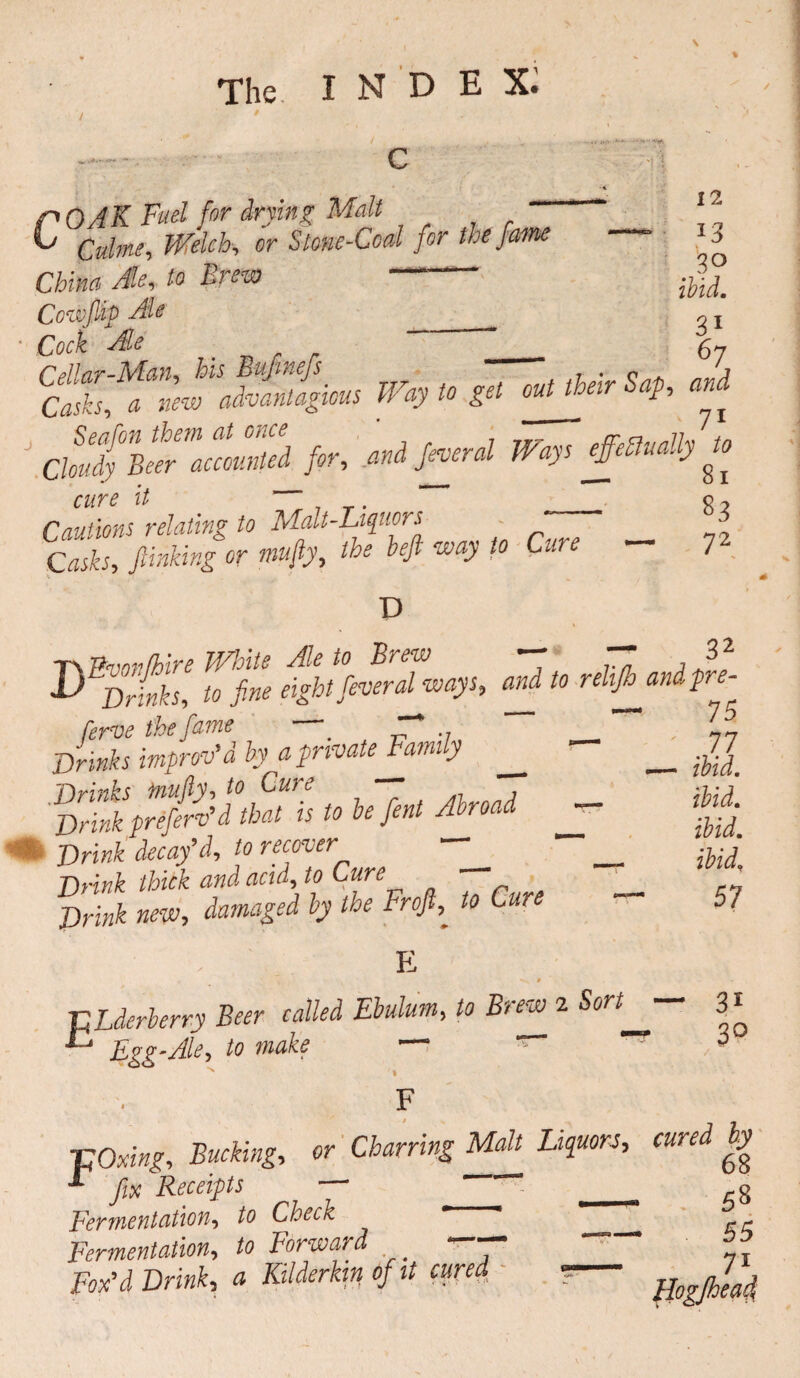 The INDEX.
C
COAK Fuel for drying Malt — 12
Culme, Welch, or Stone-Coal for the ſame — 13
China Ale, to Brew — 30
Cowſlip Ale ibid.
Cock Ale — 31
Cellar-Man, his Buſineſs — 67
Casks, a new advantagious Way to get out their Sap, and
Seaſon them at once — 71
Cloudy Beer accounted for, and ſeveral Ways effectually to
cure it — — — 81
Cautions relating to Malt-Liquors — 83
Casks, ſtinking or muſty, the beſt way to Cure — 72
D
DEvonſhire White Ale to Brew — — 32
Drinks, to fine eight ſeveral ways, and to reliſh and pre-
ſerve the ſame — — — — 75
Drinks improv'd by a private Family — 77
Drinks muſty, to Cure — — — ibid.
Drink preſerv'd that is to be ſent Abroad — ibid.
Drink decay'd, to recover — — ibid.
Drink thick and acid, to Cure — — ibid.
Drink new, damaged by the Froſt, to Cure — 57
E
ELderberry Beer called Ebulum, to Brew 2 Sort — 31
Egg-Ale, to make — — — 30
F
FOxing, Bucking, or Charring Malt Liquors, cured by
ſix Receipts — — 68
Fermentation, to Check — — 58
Fermentation, to Forward — — 55
Fox'd Drink, a Kilderkin of it cured — 71
Hogſhead